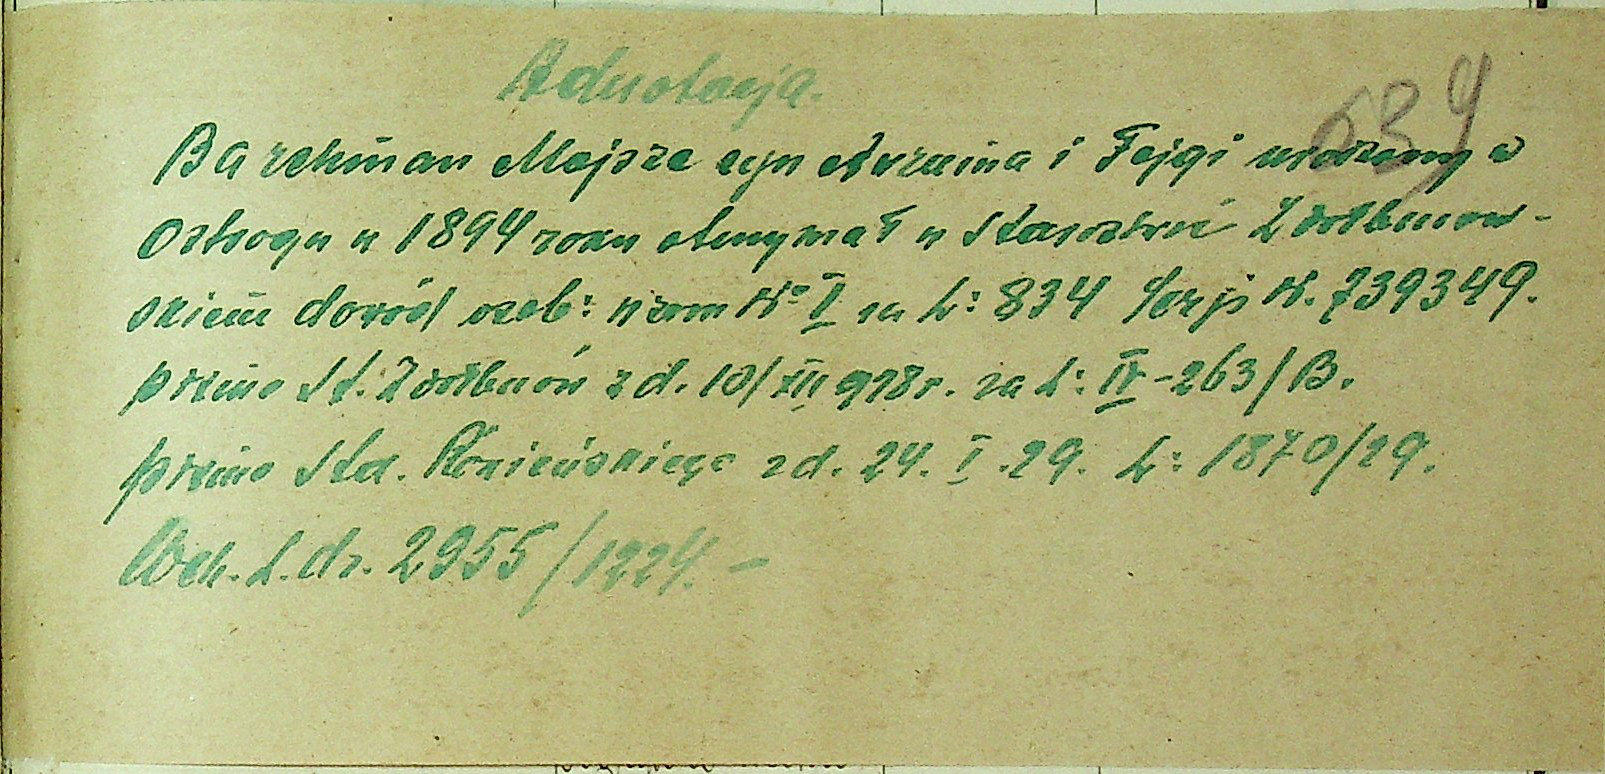 Adnotacja.
639
Barchman Mojsze syn Avruma i Fejgi urodzony w
Ostrogu w 1894 roku otrzymał w Starostwie Zdołbunow-
skiem dowód osob: wzom No I za L: 834 Serja N. 739349.
pismo St. Zdołbunów z d. 10/XII 928 r. za L: IV-263/B.
pismo Sta. z d. 24. I. 29. L: 1870/29.
L. dz. 2955/1224. -